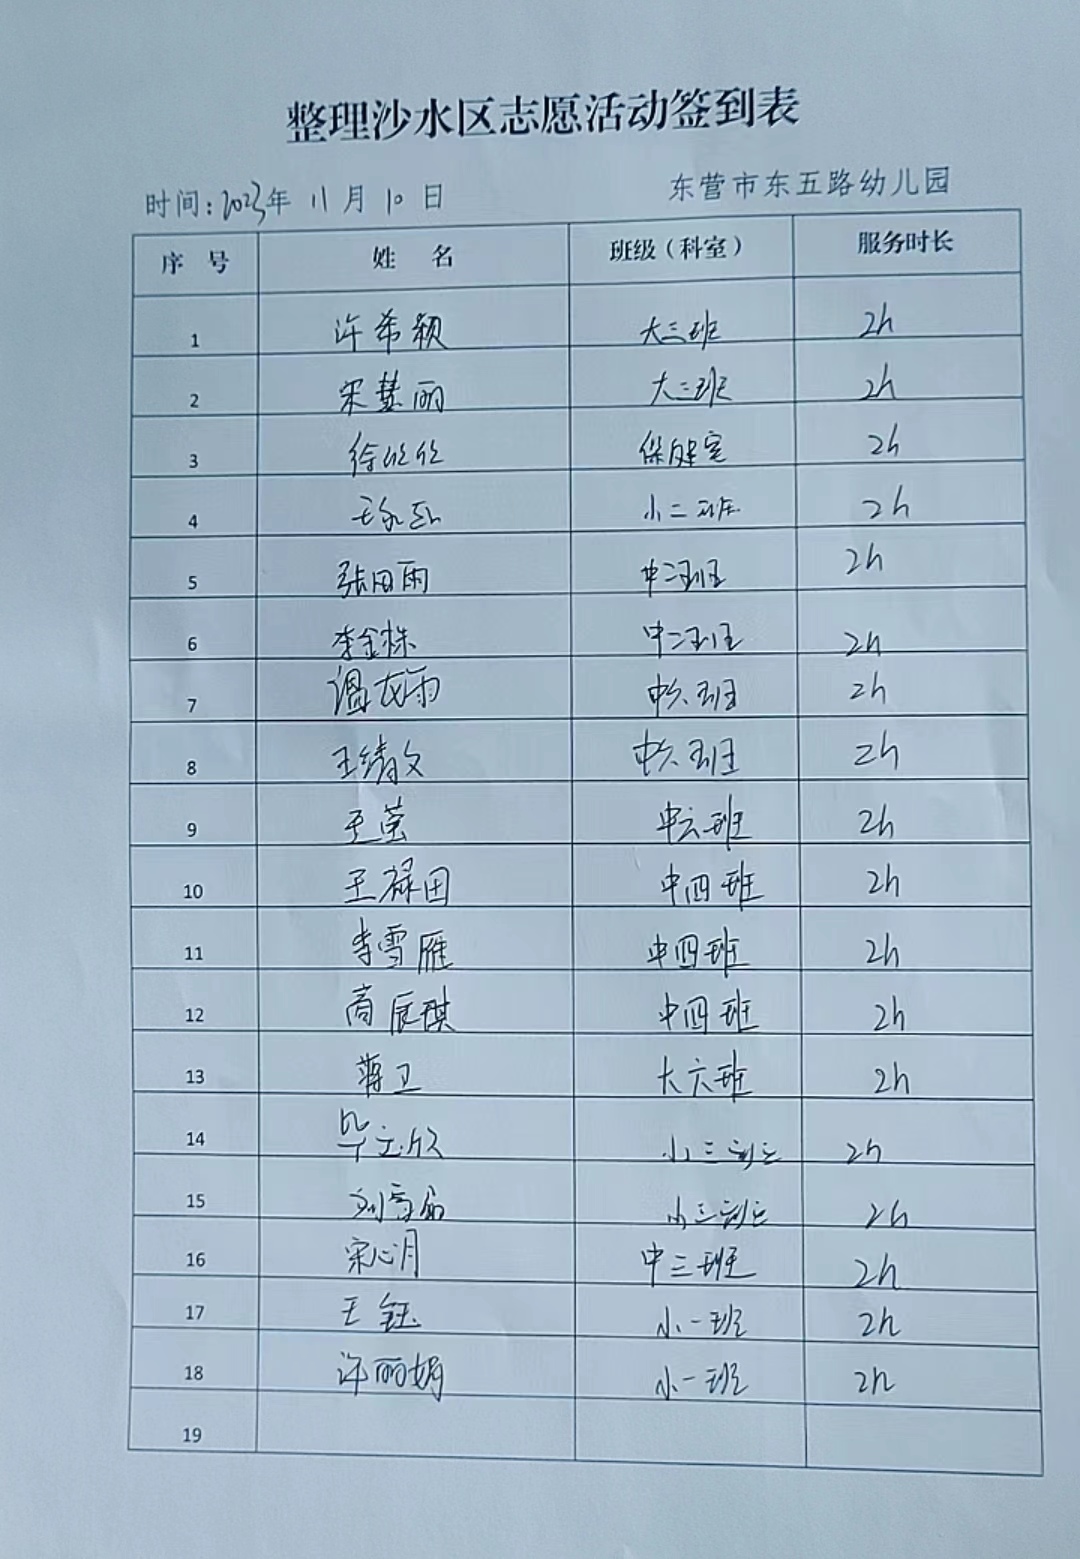 整理沙水区志愿活动签到表
时间:2023年 11 月 10 日 东营市东五路幼儿园
序 号 姓 名 班级(科室) 服务时长
1 许希颖 大三班 2h
2 宋慧丽 大三班 2h
3 徐丝丝 保健室 2h
4 小二班 2h
5 张田雨 中二班 2h
6 李金株 中二班 2h
7 温龙雨 中六班 2h
8 王绪文 中六班 2h
9 王莹 中六班 2h
10 王禄田 中四班 2h
11 李雪雁 中四班 2h
12 商辰琪 中四班 2h
13 蒋卫 大六班 2h
14 毕文欣 小三班 2h
15 刘雪 小三班 2h
16 宋心月 中三班 2h
17 王钰 小一班 2h
18 许丽娟 小一班 2h
19